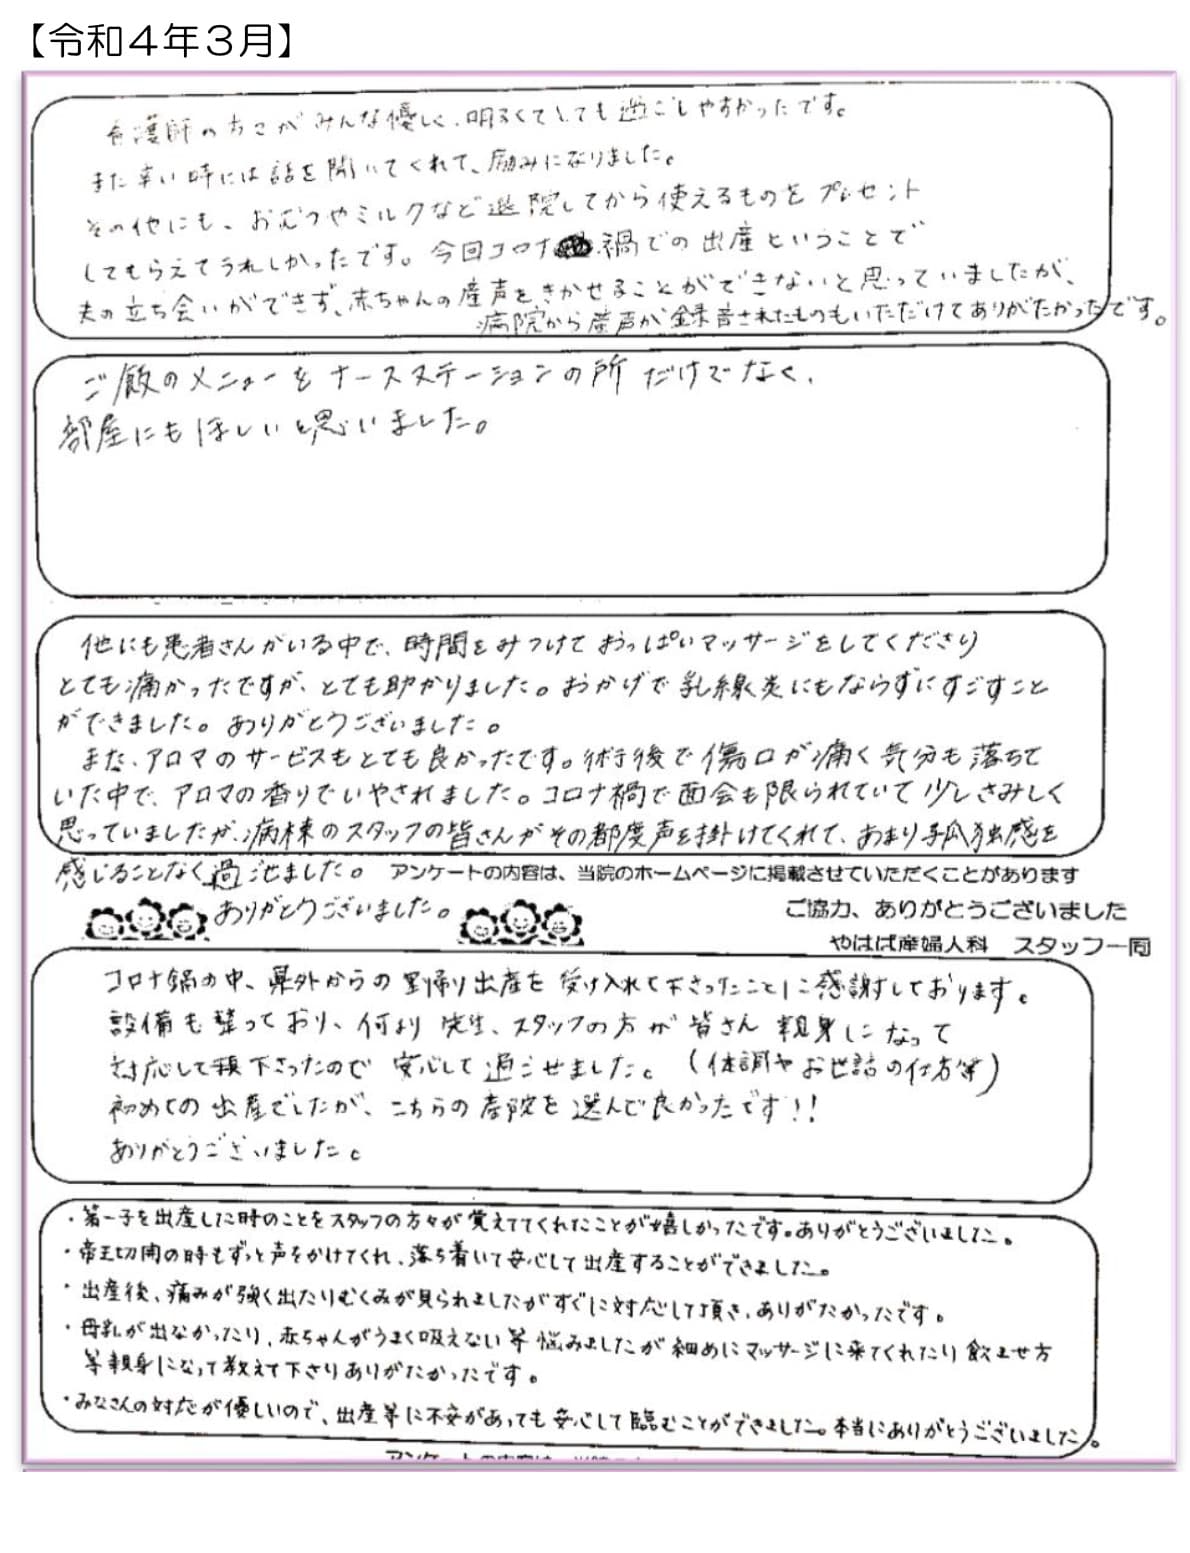 【令和４年３月】
看護師の方々がみんな優しく、明るくてとても過ごしやすかったです。
また辛い時には話を聞いてくれて、励みになりました。
その他にも、おむつやミルクなど退院してから使えるものをプレゼント
してもらえてうれしかったです。今回コロナ禍での出産ということで
夫の立ち会いができず、赤ちゃんの産声をきかせることができないと思っていましたが、
病院から産声が録音されたものもいただけてありがたかったです。
ご飯のメニューをナースステーションの所だけでなく、
部屋にもほしいと思いました。
他にも患者さんがいる中で、時間をみつけておっぱいマッサージをしてくださり
とても痛かったですが、とても助かりました。おかげで乳線炎にもならずにすごすこと
ができました。ありがとうございました。
また、アロマのサービスもとても良かったです。術後で傷口が痛く気分も落ちて
いた中で、アロマの香りでいやされました。コロナ禍で面会も限られていて少しさみしく
思っていましたが、病棟のスタッフの皆さんがその都度声を掛けてくれて、あまり孤独感を
感じることなく過ごせました。
アンケートの内容は、当院のホームページに掲載させていただくことがあります
ありがとうございました。
ご協力、ありがとうございました
やはば産婦人科　スタッフ一同
コロナ禍の中、県外からの里帰り出産を受け入れて下さったことに感謝しております。
設備も整っており、何より先生、スタッフの方が皆さん親身になって
対応して頂下さったので安心して過ごせました。（体調やお世話の仕方等）
初めての出産でしたが、こちらの産院を選んで良かったです!!
ありがとうございました。
・第一子を出産した時のことをスタッフの方々が覚えててくれたことが嬉しかったです。ありがとうございました。
・帝王切開の時もずっと声をかけてくれ、落ち着いて安心して出産することができました。
・出産後、痛みが強く出たりむくみが見られましたがすぐに対応して頂き、ありがたかったです。
・母乳が出なかったり、赤ちゃんがうまく吸えない等悩みましたが細めにマッサージに来てくれたり飲ませ方
等親身になって教えて下さりありがたかったです。
・みなさんの対応が優しいので、出産等に不安があっても安心して臨むことができました。本当にありがとうございました。
アンケートの内容は、当院